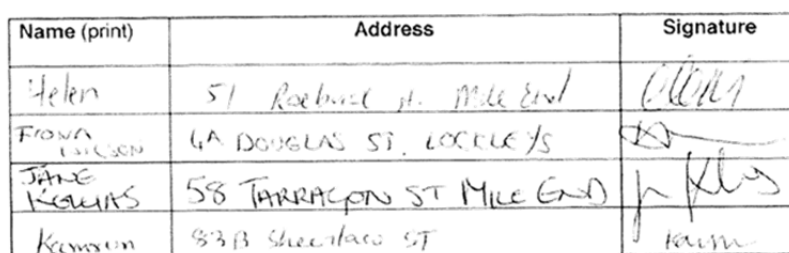 Name (print) Address Signature
Helen 51 Roebuck st. Mile End
FIONA WILSON 4A DOUGLAS ST. LOCKLEYS
JANE KOLLIAS 58 TARRAGON ST MILE END
Kamrun 83B ST